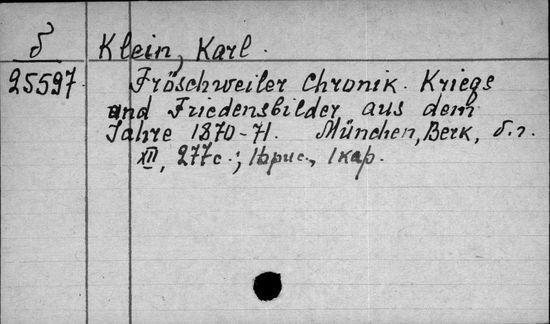 б Klein, Karl.
25597. Fröschweiler Chronik. Kriegs
und Friedensbilder aus dem
Jahre 1870-71. München, Berk, б.г.
XII, 277с.; 1 рис., 1 кар.